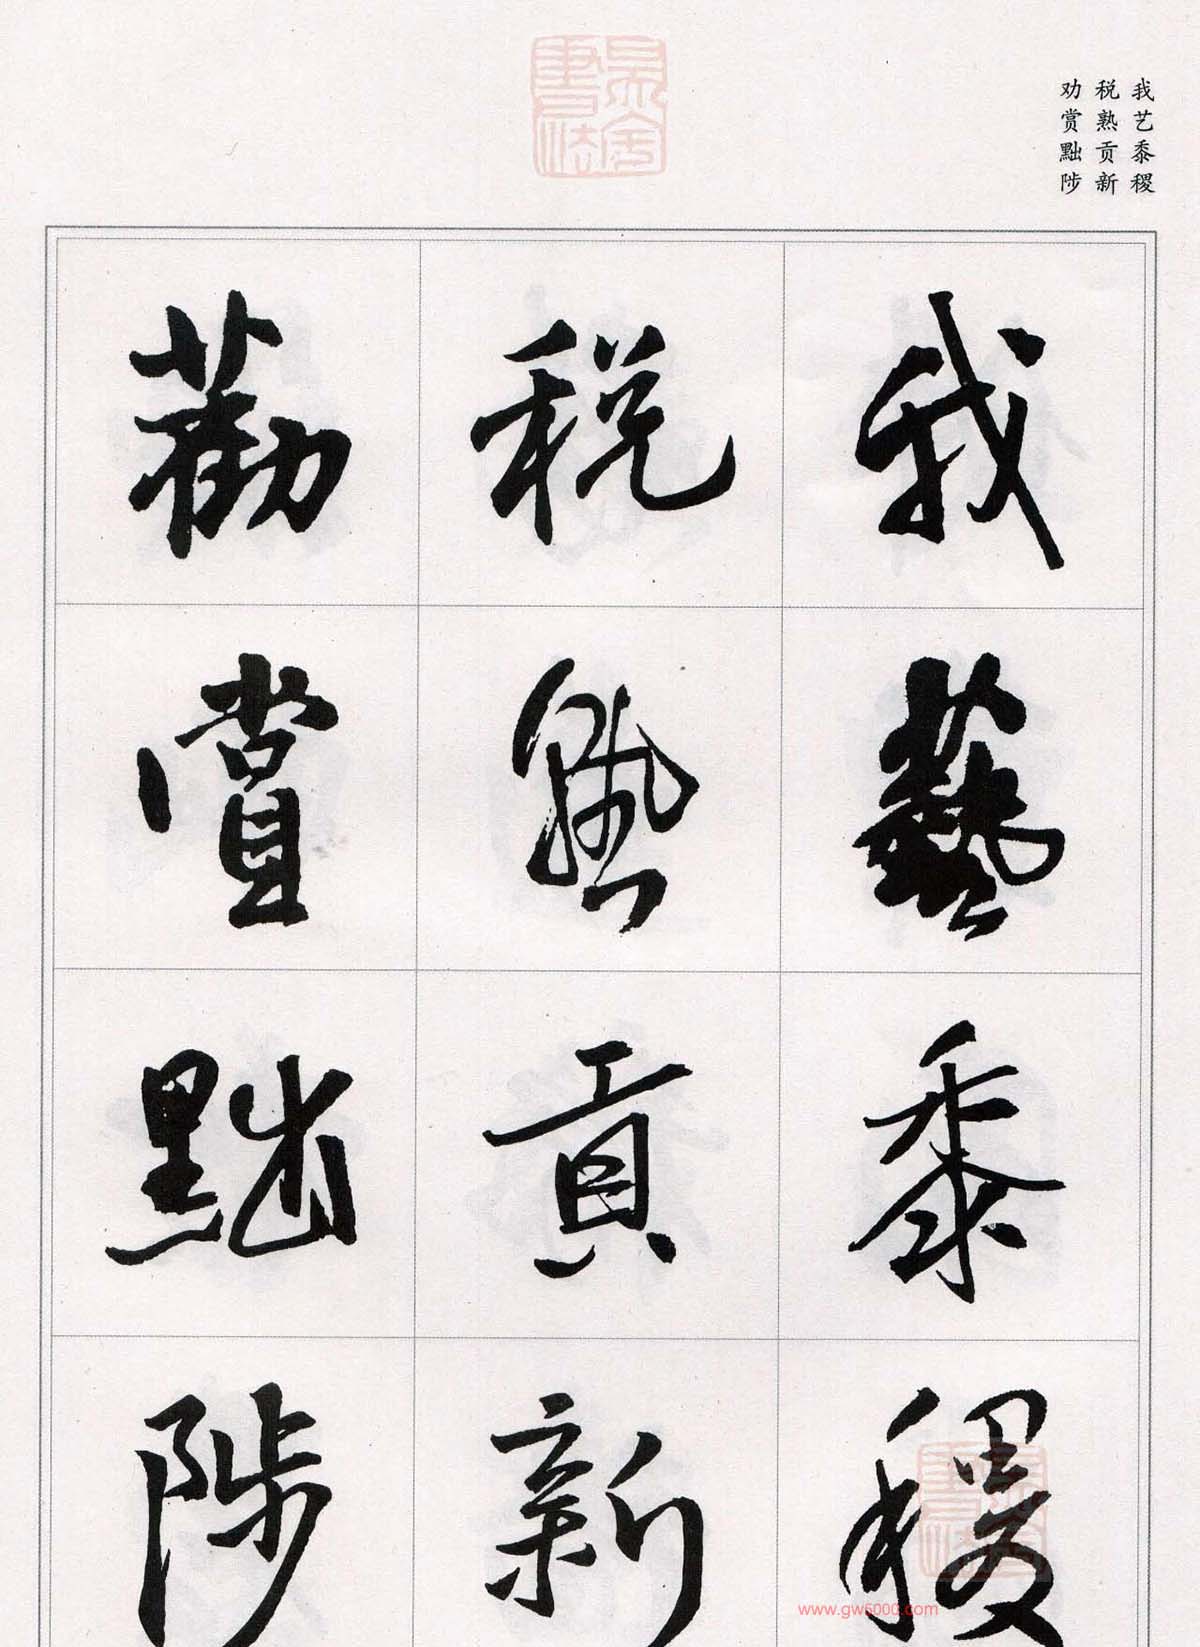 我艺黍稷
税熟贡新
劝赏黜陟
我藝黍稷
税熟貢新
勸賞黜陟
www.gw5000.com